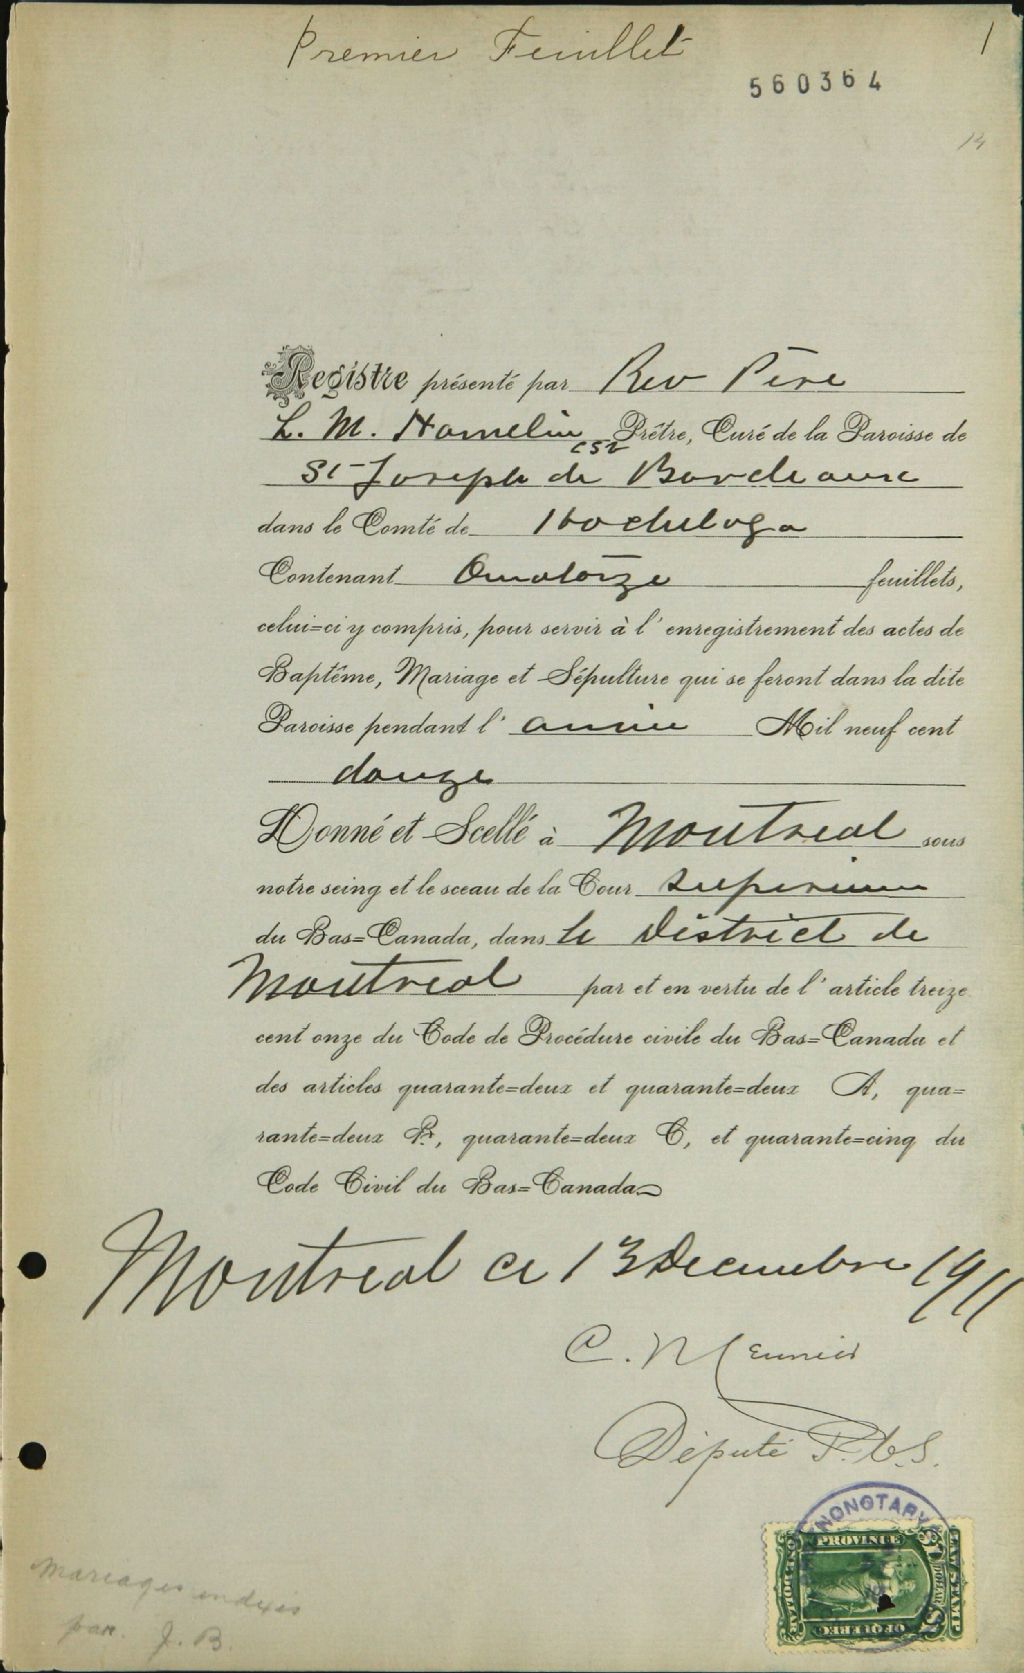 Premier Feuillet
1
560364
14
Registre présenté par Rev Père
L. M. Hamelin Prêtre, Curé de la Paroisse de
csv
St Joseph de Bordeaux
dans le Comté de Hochelaga
Contenant Quatorze feuillets,
celui=ci y compris, pour servir à l'enregistrement des actes de
Baptême, Mariage et Sépulture qui se feront dans la dite
Paroisse pendant l'année Mil neuf cent
douze
Donné et Scellé à Montreal sous
notre seing et le sceau de la Cour Superieure
du Bas=Canada, dans le District de
Montreal par et en vertu de l'article treize
cent onze du Code de Procédure civile du Bas=Canada et
des articles quarante=deux et quarante=deux A, qua=
rante=deux B, quarante=deux C, et quarante=cinq du
Code Civil du Bas=Canada
Montreal ce 13 Decembre 1911
C. Meunier
Député P.C.S.
PROVINCE
OF QUEBEC
LAW STAMP
ONE DOLLAR
$1
DOLLAR
$1
Mariages indexés
par. J. B.